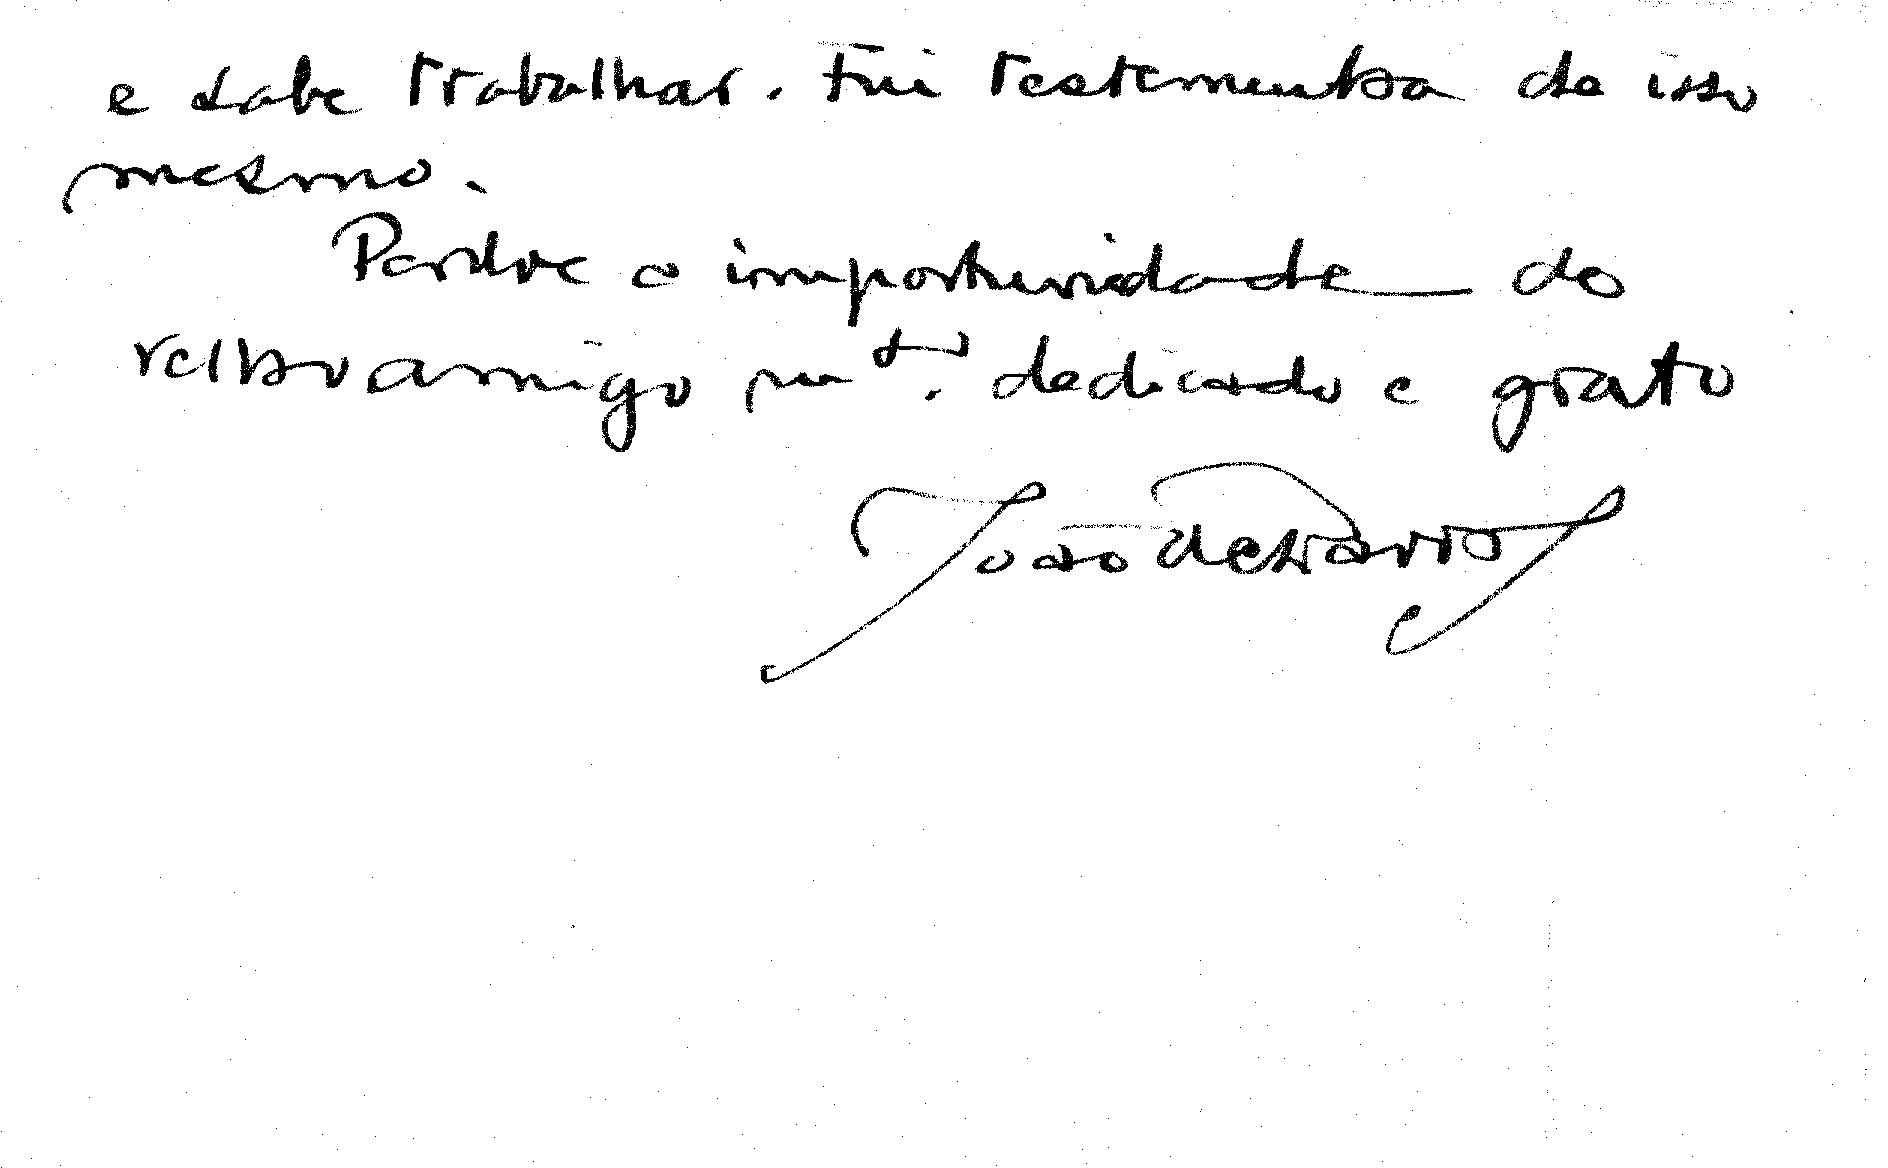 e sabe trabalhar. Fui testemunha de isso
mesmo.
Perdoe a importunidade do
velho amigo m.to dedicado e grato
João de Barros